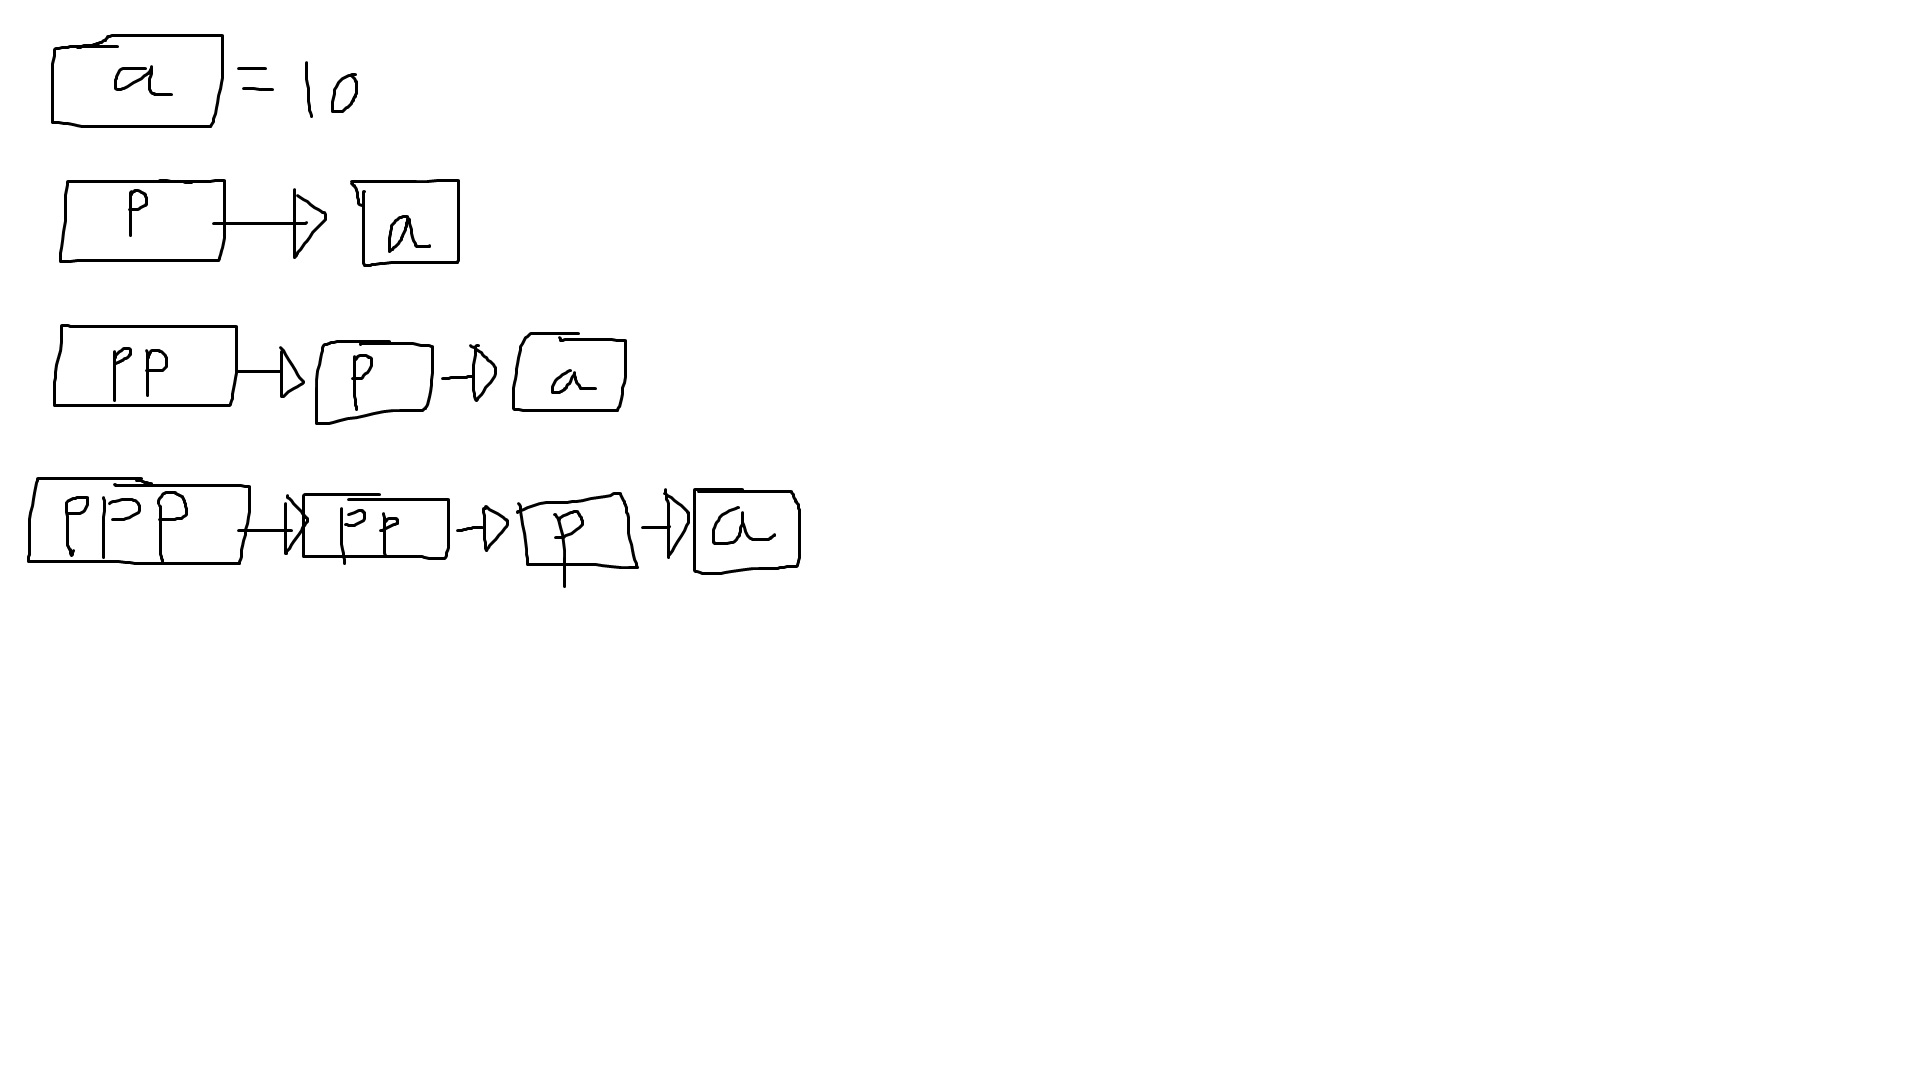 a = 10
p a
pp p a
ppp pp p a